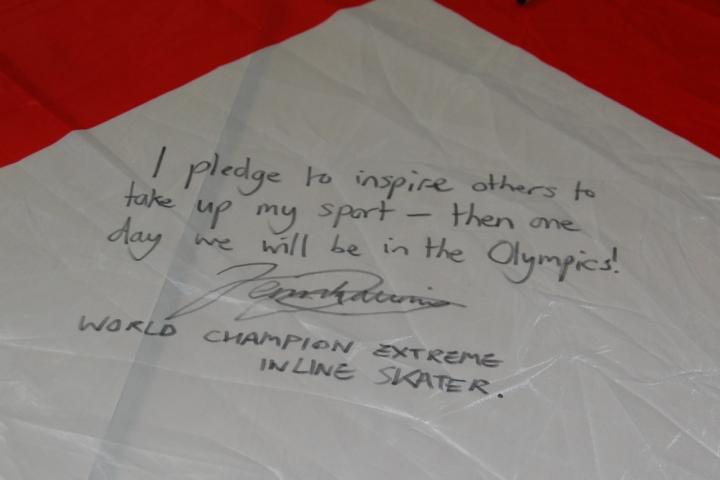 I pledge to inspire others to
take up my sport — then one
day we will be in the Olympics!
WORLD CHAMPION EXTREME
INLINE SKATER.